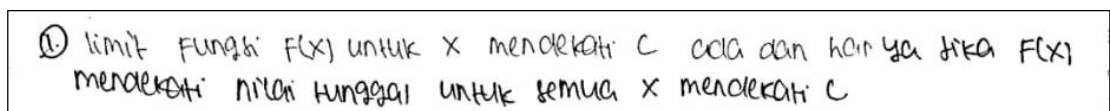 ① limit Fungsi F(x) untuk x mendekati C ada dan hanya jika F(x)
mendekati nilai tunggal untuk semua x mendekati C